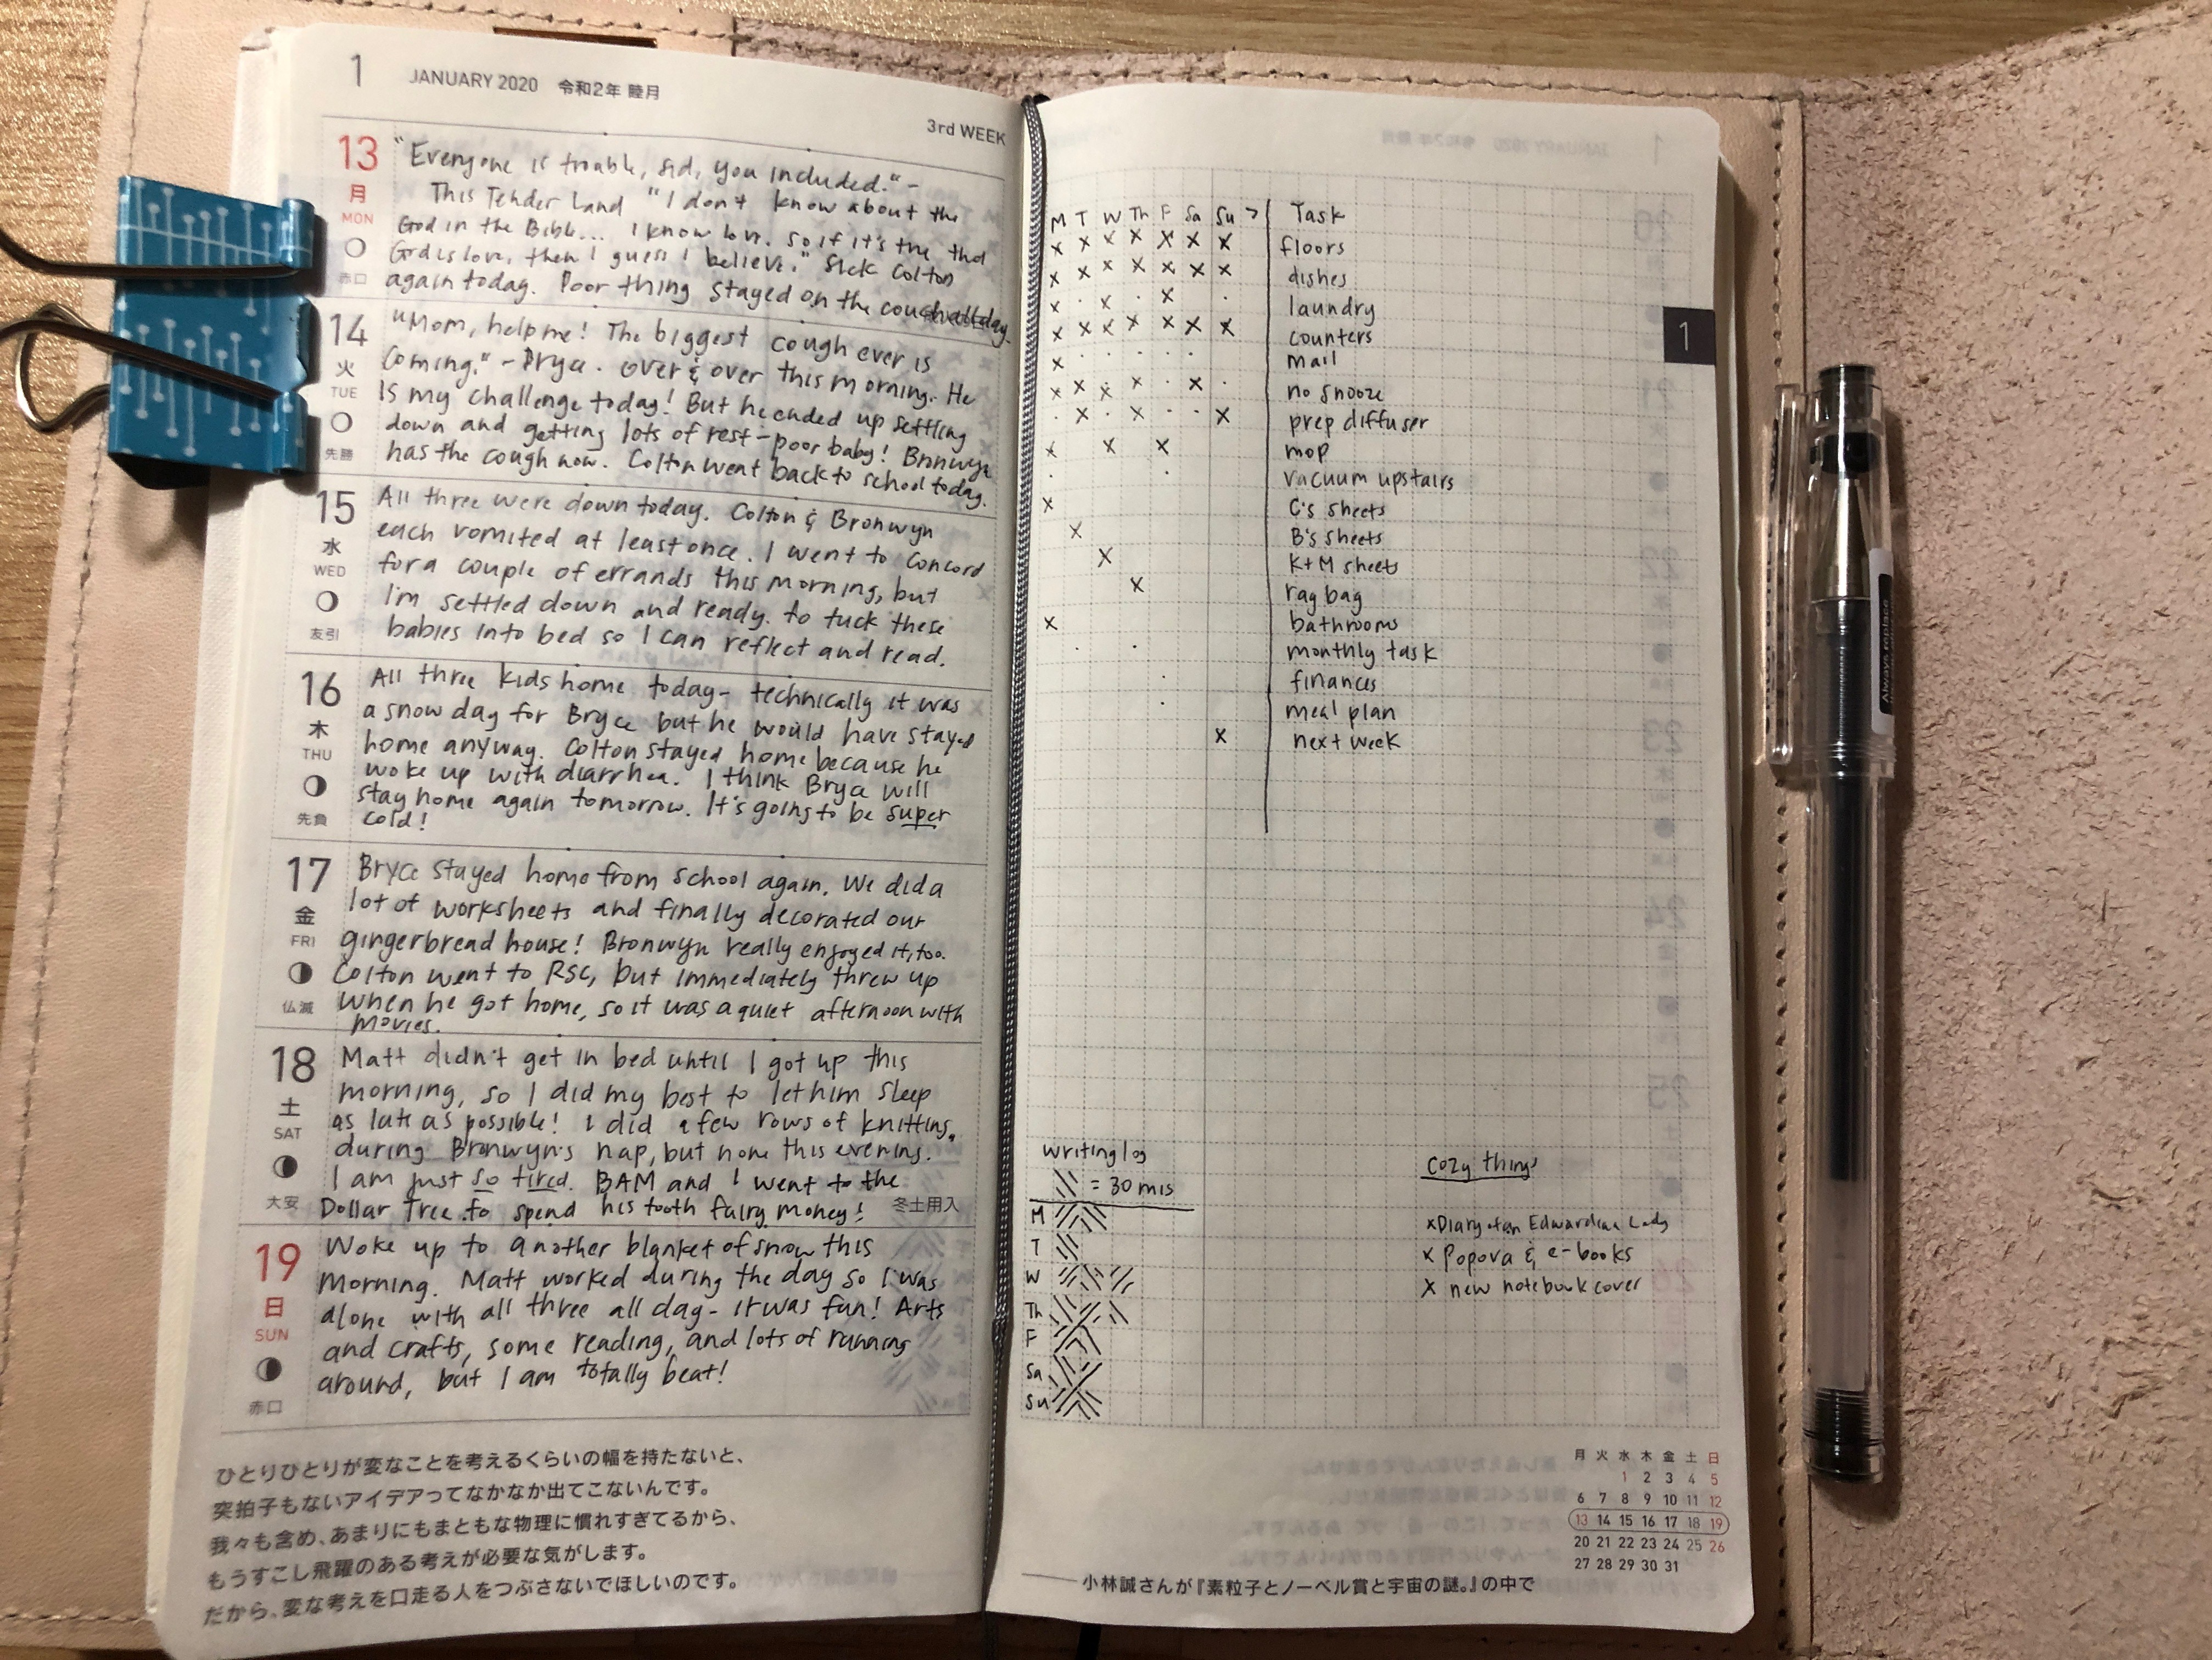 1 JANUARY 2020 令和2年 睦月
3rd WEEK
13 月 MON 赤口
"Everyone is trouble, Sid, you included." -
This Tender Land "I don't know about the
God in the Bible... I know love. So if it's true that
God is love, then I guess I believe." Sick Colton
again today. Poor thing stayed on the couch all day.
14 火 TUE 先勝
"Mom, help me! The biggest cough ever is
coming." - Bryce. Over & over this morning. He
is my challenge today! But he ended up settling
down and getting lots of rest - poor baby! Bronwyn
has the cough now. Colton went back to school today.
15 水 WED 友引
All three were down today. Colton & Bronwyn
each vomited at least once. I went to Concord
for a couple of errands this morning, but
I'm settled down and ready to tuck these
babies into bed so I can reflect and read.
16 木 THU 先負
All three kids home today - technically it was
a snow day for Bryce but he would have stayed
home anyway. Colton stayed home because he
woke up with diarrhea. I think Bryce will
stay home again tomorrow. It's going to be super
cold!
17 金 FRI 仏滅
Bryce stayed home from school again. We did a
lot of worksheets and finally decorated our
gingerbread house! Bronwyn really enjoyed it, too.
Colton went to RSC, but immediately threw up
when he got home, so it was a quiet afternoon with
movies.
18 土 SAT 大安
Matt didn't get in bed until I got up this
morning, so I did my best to let him sleep
as late as possible! I did a few rows of knitting
during Bronwyn's nap, but none this evening.
I am just so tired. BAM and I went to the
Dollar Tree to spend his tooth fairy money!
冬土用入
19 日 SUN 赤口
Woke up to another blanket of snow this
morning. Matt worked during the day so I was
alone with all three all day - it was fun! Arts
and crafts, some reading, and lots of running
around, but I am totally beat!
ひとりひとりが変なことを考えるくらいの幅を持たないと、
突拍子もないアイデアってなかなか出てこないんです。
我々も含め、あまりにもまともな物理に慣れすぎてるから、
もうすこし飛躍のある考えが必要な気がします。
だから、変な考えを口走る人をつぶさないでほしいのです。
M T W Th F Sa Su > Task
x x x x x x x floors
x x x x x x x dishes
x · x · x · laundry
x x x x x x x counters
x · · · · mail
x x x x · x · no snooze
· x · x · · x prep diffuser
x x x mop
· · vacuum upstairs
x C's sheets
x B's sheets
x K+M sheets
x rag bag
x bathrooms
· · monthly task
· finances
· meal plan
x next week
1
writing log
= 30 mis
M
T
W
Th
F
Sa
Su
cozy things
x Diary of an Edwardian Lady
x Popova & e-books
x new notebook cover
月 火 水 木 金 土 日
1 2 3 4 5
6 7 8 9 10 11 12
13 14 15 16 17 18 19
20 21 22 23 24 25 26
27 28 29 30 31
小林誠さんが『素粒子とノーベル賞と宇宙の謎。』の中で
Always replace